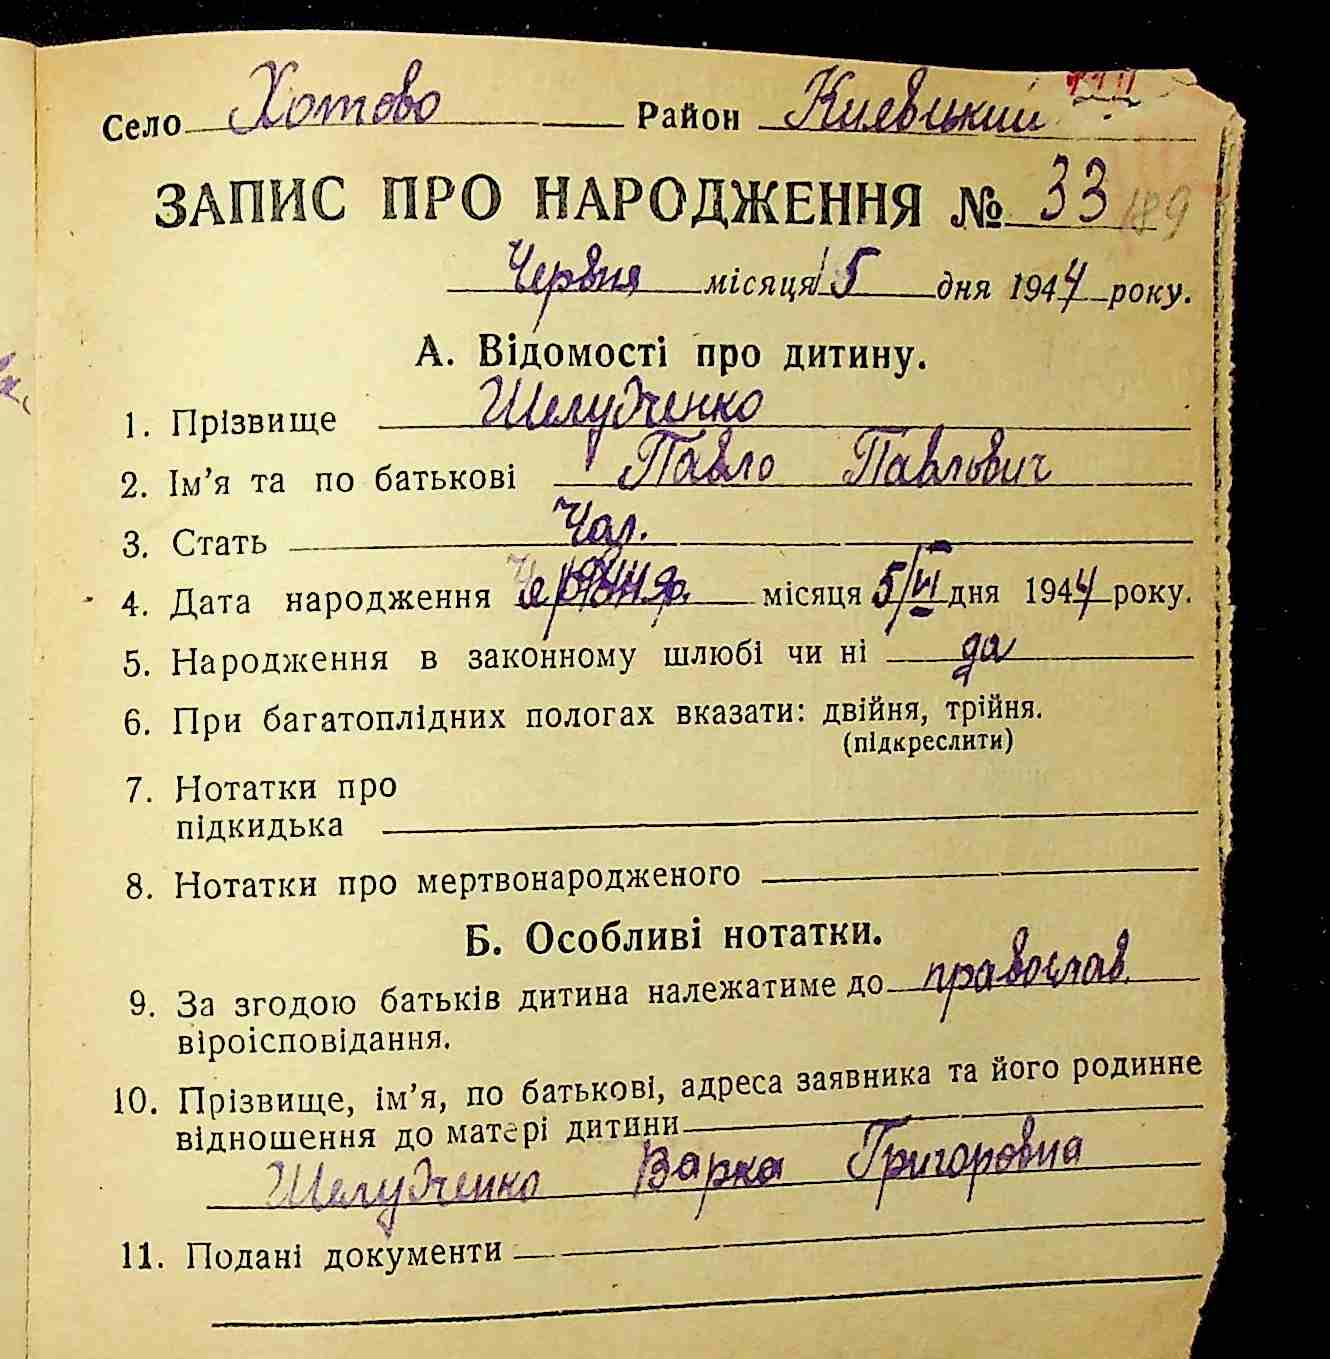 Село Хотово Район Киевский
ЗАПИС ПРО НАРОДЖЕННЯ № 33/89
Червня місяця 15 дня 1944 року.
А. Відомості про дитину.
1. Прізвище Шелудченко
2. Ім'я та по батькові Павло Павлович
3. Стать Чол.
4. Дата народження Червня місяця 5/VI дня 1944 року.
5. Народження в законному шлюбі чи ні да
6. При багатоплідних пологах вказати: двійня, трійня.
(підкреслити)
7. Нотатки про
підкидька
8. Нотатки про мертвонародженого
Б. Особливі нотатки.
9. За згодою батьків дитина належатиме до православ.
віроісповідання.
10. Прізвище, ім'я, по батькові, адреса заявника та його родинне
відношення до матері дитини
Шелудченко Варка Григоровна
11. Подані документи